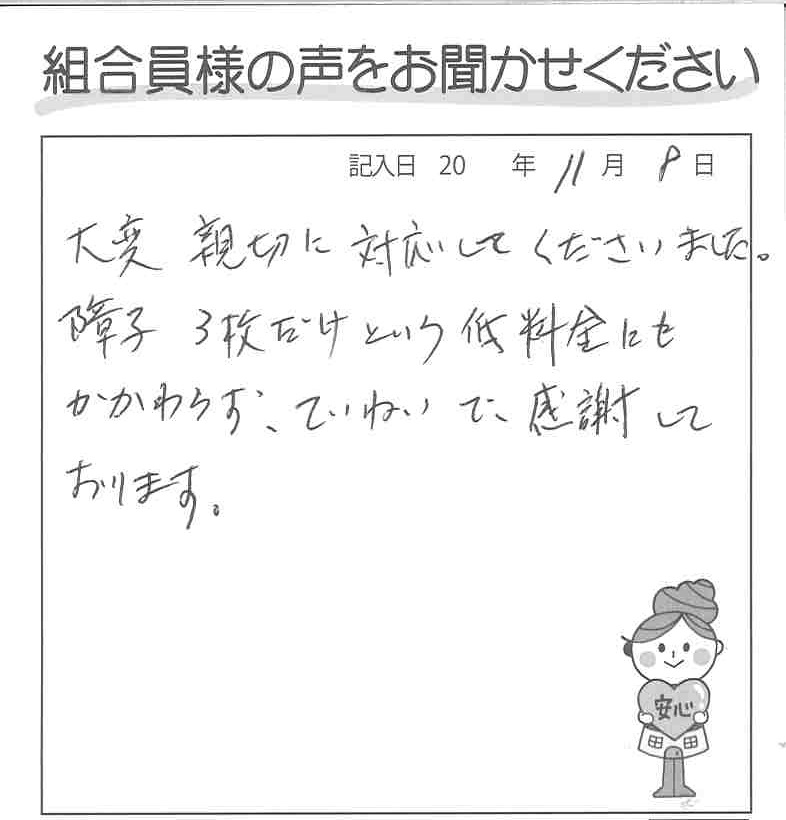 組合員様の声をお聞かせください
記入日 20 年 11月 8日
大変 親切に 対応して くださいました。
障子 3枚だけという 低料金にも
かかわらず、ていねいで、感謝して
おります。
安心